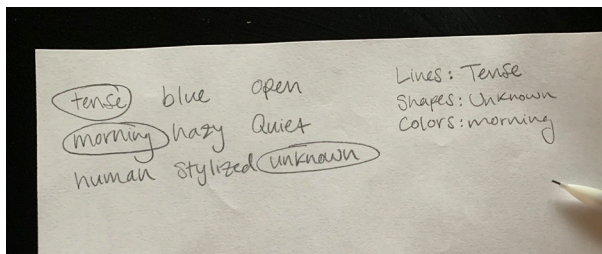 tense blue open
morning hazy Quiet
human stylized unknown
Lines: Tense
Shapes: Unknown
Colors: morning